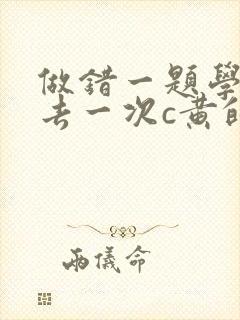 做錯一題學
去一次c黃自
兩儀命